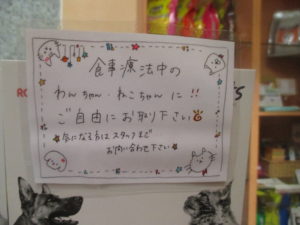 食事療法中の
わんちゃん・ねこちゃんに!!
ご自由にお取り下さい
気になる方はスタッフまで
お問い合わせ下さい